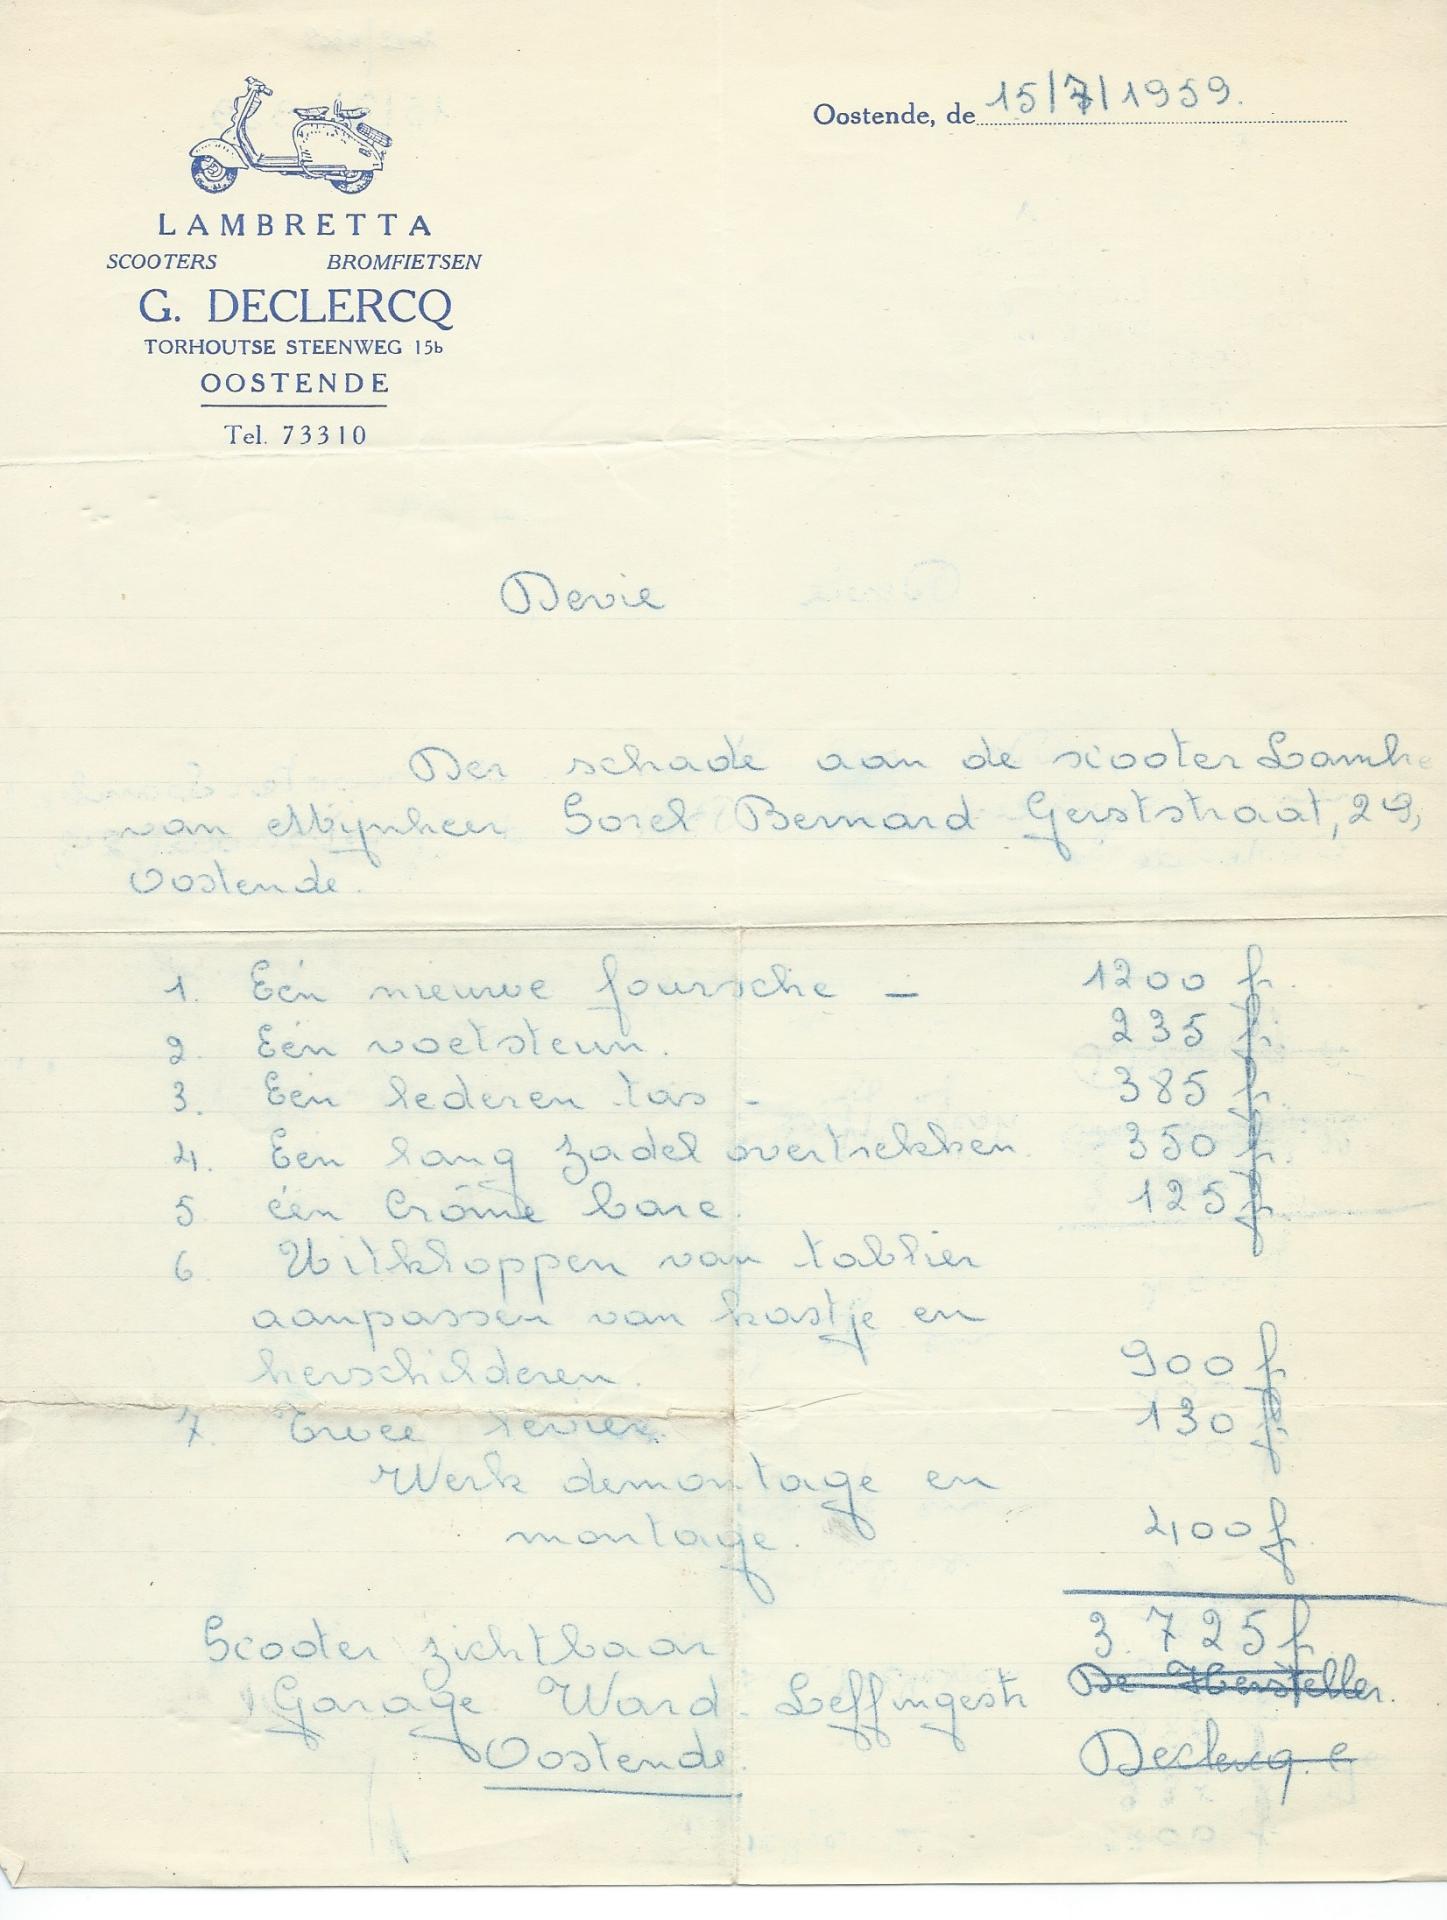 Oostende, de 15/7/1959.
LAMBRETTA
SCOOTERS BROMFIETSEN
G. DECLERCQ
TORHOUTSE STEENWEG 15b
OOSTENDE
Tel. 73310
Devie
Der schade aan de scooter Lambre
van Mijnheer Sorel Bernard Gerststraat, 29,
Oostende.
1. Eén nieuwe foursche — 1200 fr.
2. Eén voetsteun. 235 fr.
3. Eén lederen tas - 385 fr
4. Een lang zadel overtrekken. 350 fr.
5 één Crôme bare. 125 fr
6. Uitkloppen van tablier
aanpassen van kastje en
herschilderen. 900 fr
7. Twee levier. 130 fr
Werk demontage en
montage. 400 fr.
3.725 fr.
Scooter zichtbaar
Garage Ward. Leffingestr De Hersteller.
Oostende. Declercq. G